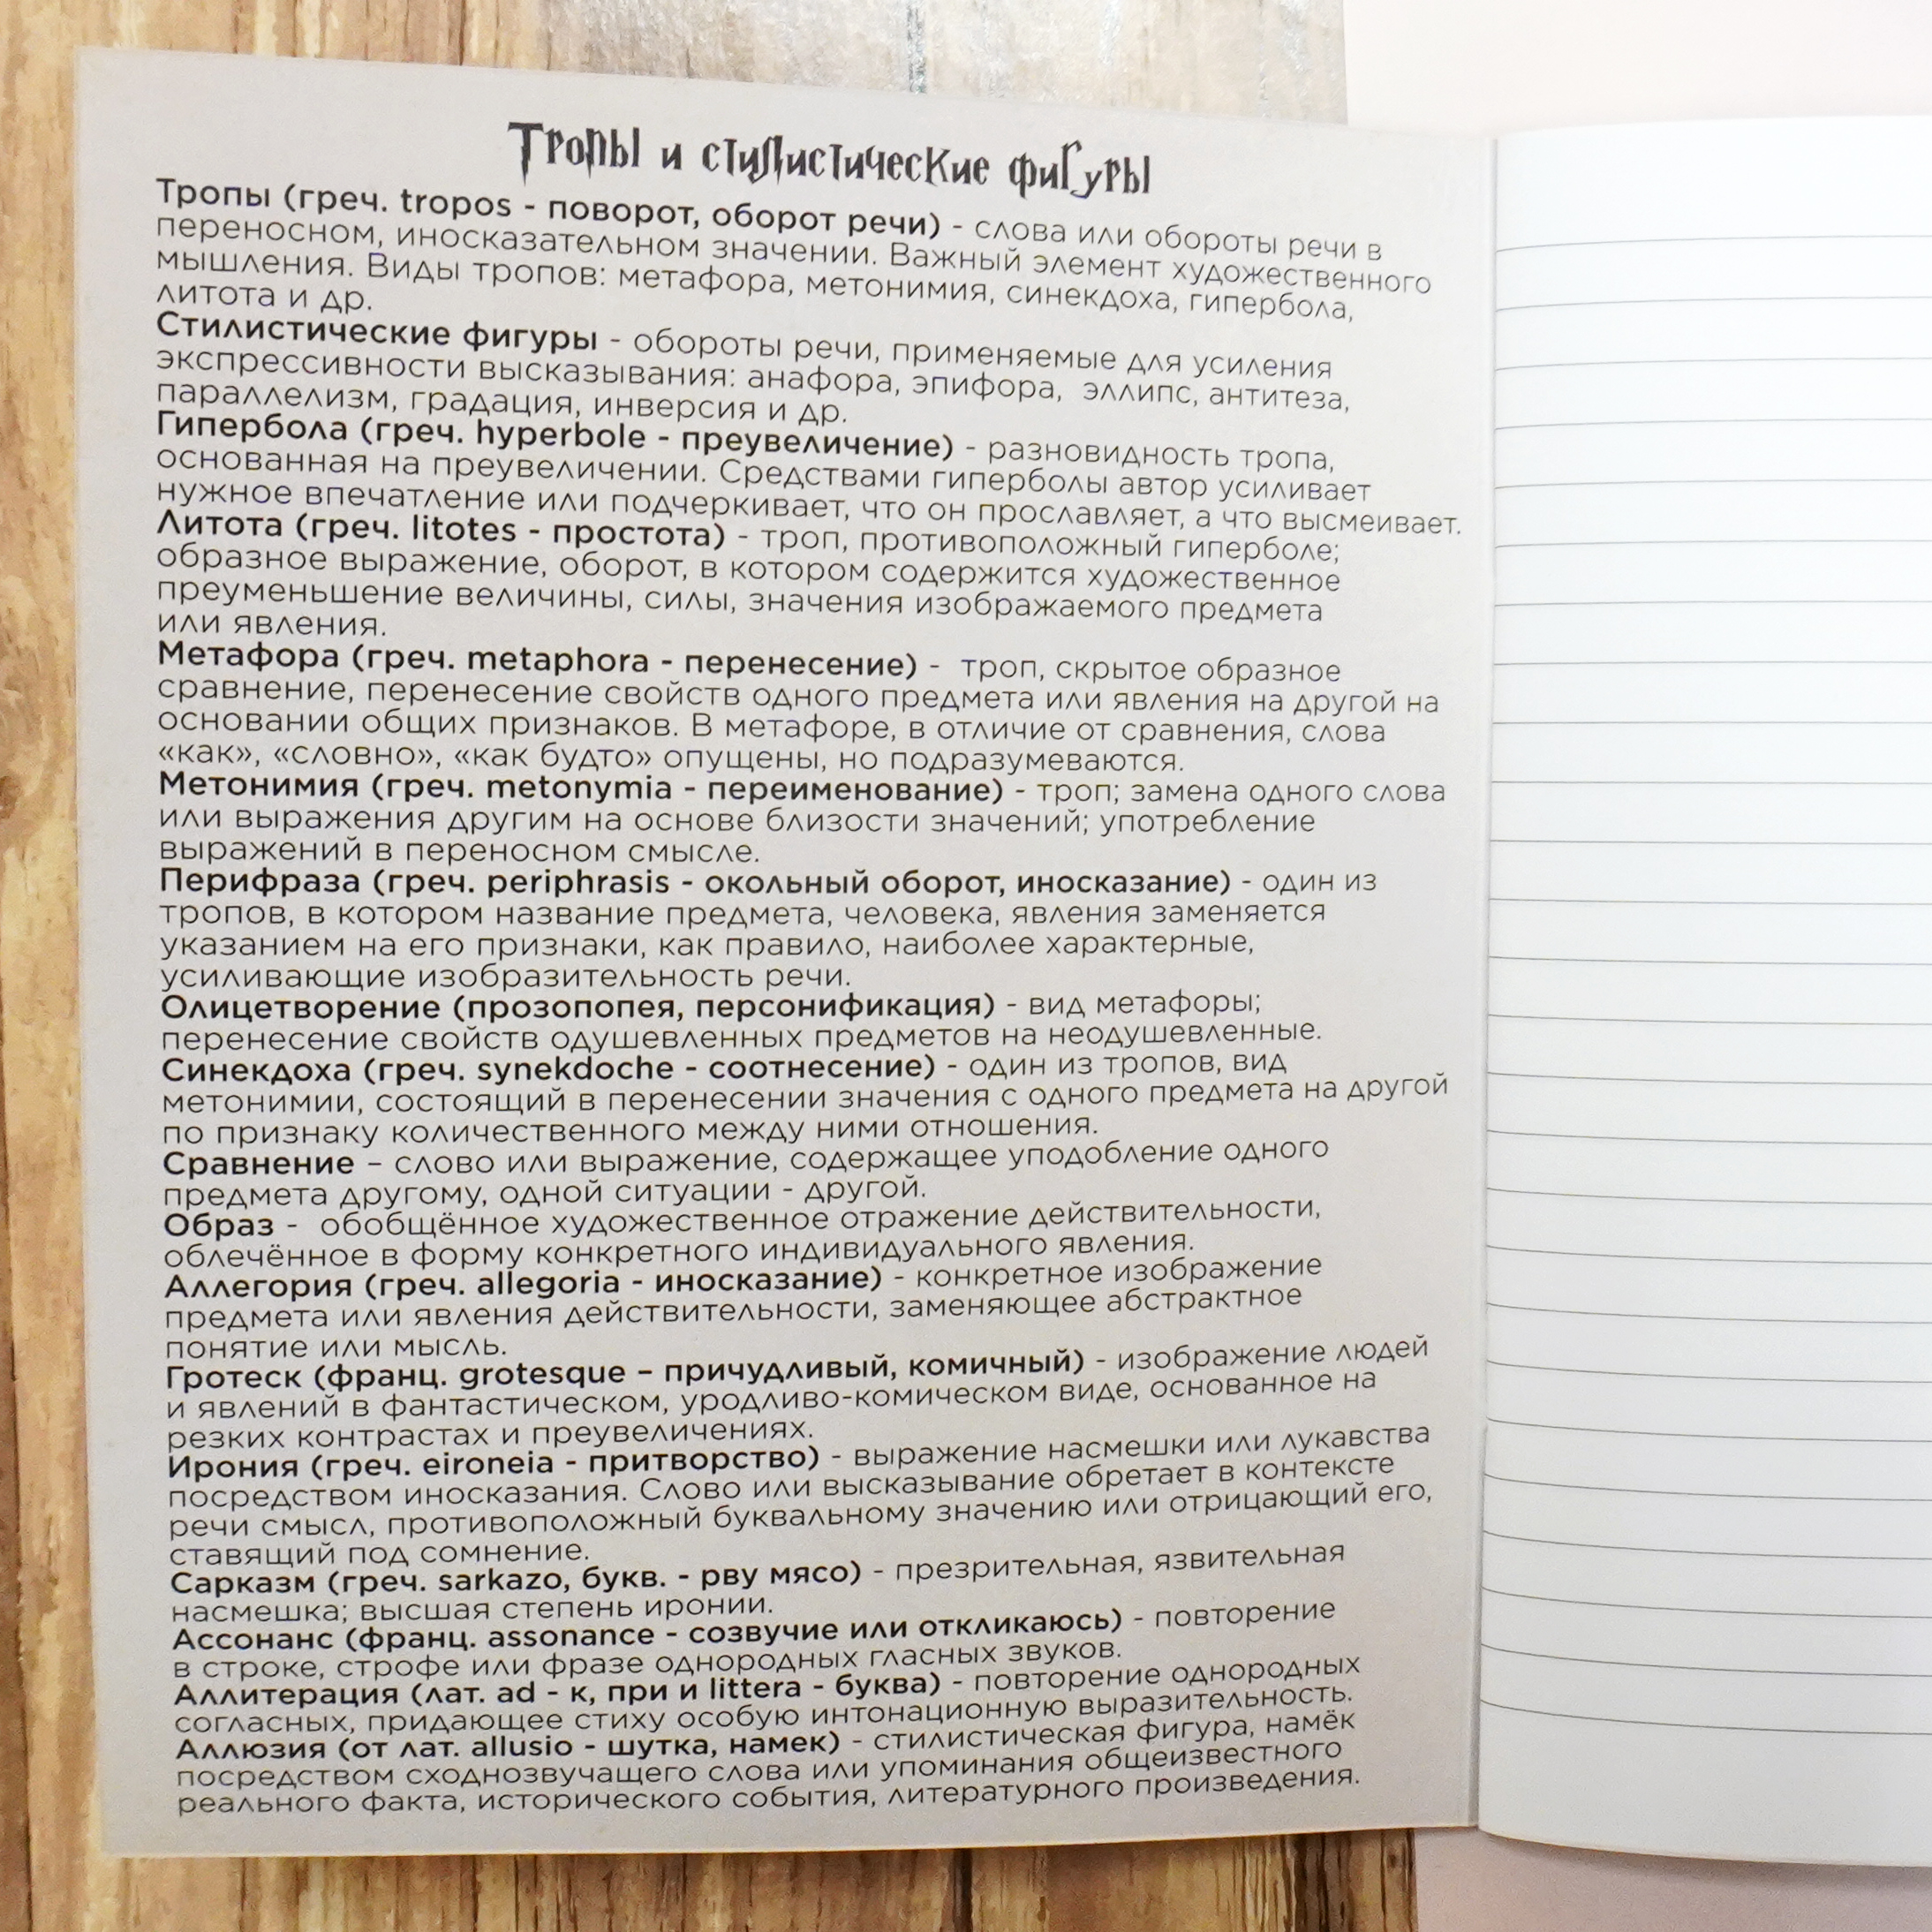 Тропы и стилистические фигуры
Тропы (греч. tropos - поворот, оборот речи) - слова или обороты речи в
переносном, иносказательном значении. Важный элемент художественного
мышления. Виды тропов: метафора, метонимия, синекдоха, гипербола,
литота и др.
Стилистические фигуры - обороты речи, применяемые для усиления
экспрессивности высказывания: анафора, эпифора, эллипс, антитеза,
параллелизм, градация, инверсия и др.
Гипербола (греч. hyperbole - преувеличение) - разновидность тропа,
основанная на преувеличении. Средствами гиперболы автор усиливает
нужное впечатление или подчеркивает, что он прославляет, а что высмеивает.
Литота (греч. litotes - простота) - троп, противоположный гиперболе;
образное выражение, оборот, в котором содержится художественное
преуменьшение величины, силы, значения изображаемого предмета
или явления.
Метафора (греч. metaphora - перенесение) - троп, скрытое образное
сравнение, перенесение свойств одного предмета или явления на другой на
основании общих признаков. В метафоре, в отличие от сравнения, слова
«как», «словно», «как будто» опущены, но подразумеваются.
Метонимия (греч. metonymia - переименование) - троп; замена одного слова
или выражения другим на основе близости значений; употребление
выражений в переносном смысле.
Перифраза (греч. periphrasis - окольный оборот, иносказание) - один из
тропов, в котором название предмета, человека, явления заменяется
указанием на его признаки, как правило, наиболее характерные,
усиливающие изобразительность речи.
Олицетворение (прозопопея, персонификация) - вид метафоры;
перенесение свойств одушевленных предметов на неодушевленные.
Синекдоха (греч. synekdoche - соотнесение) - один из тропов, вид
метонимии, состоящий в перенесении значения с одного предмета на другой
по признаку количественного между ними отношения.
Сравнение – слово или выражение, содержащее уподобление одного
предмета другому, одной ситуации - другой.
Образ - обобщённое художественное отражение действительности,
облечённое в форму конкретного индивидуального явления.
Аллегория (греч. allegoria - иносказание) - конкретное изображение
предмета или явления действительности, заменяющее абстрактное
понятие или мысль.
Гротеск (франц. grotesque – причудливый, комичный) - изображение людей
и явлений в фантастическом, уродливо-комическом виде, основанное на
резких контрастах и преувеличениях.
Ирония (греч. eironeia - притворство) - выражение насмешки или лукавства
посредством иносказания. Слово или высказывание обретает в контексте
речи смысл, противоположный буквальному значению или отрицающий его,
ставящий под сомнение.
Сарказм (греч. sarkazo, букв. - рву мясо) - презрительная, язвительная
насмешка; высшая степень иронии.
Ассонанс (франц. assonance - созвучие или откликаюсь) - повторение
в строке, строфе или фразе однородных гласных звуков.
Аллитерация (лат. ad - к, при и littera - буква) - повторение однородных
согласных, придающее стиху особую интонационную выразительность.
Аллюзия (от лат. allusio - шутка, намек) - стилистическая фигура, намёк
посредством сходнозвучащего слова или упоминания общеизвестного
реального факта, исторического события, литературного произведения.